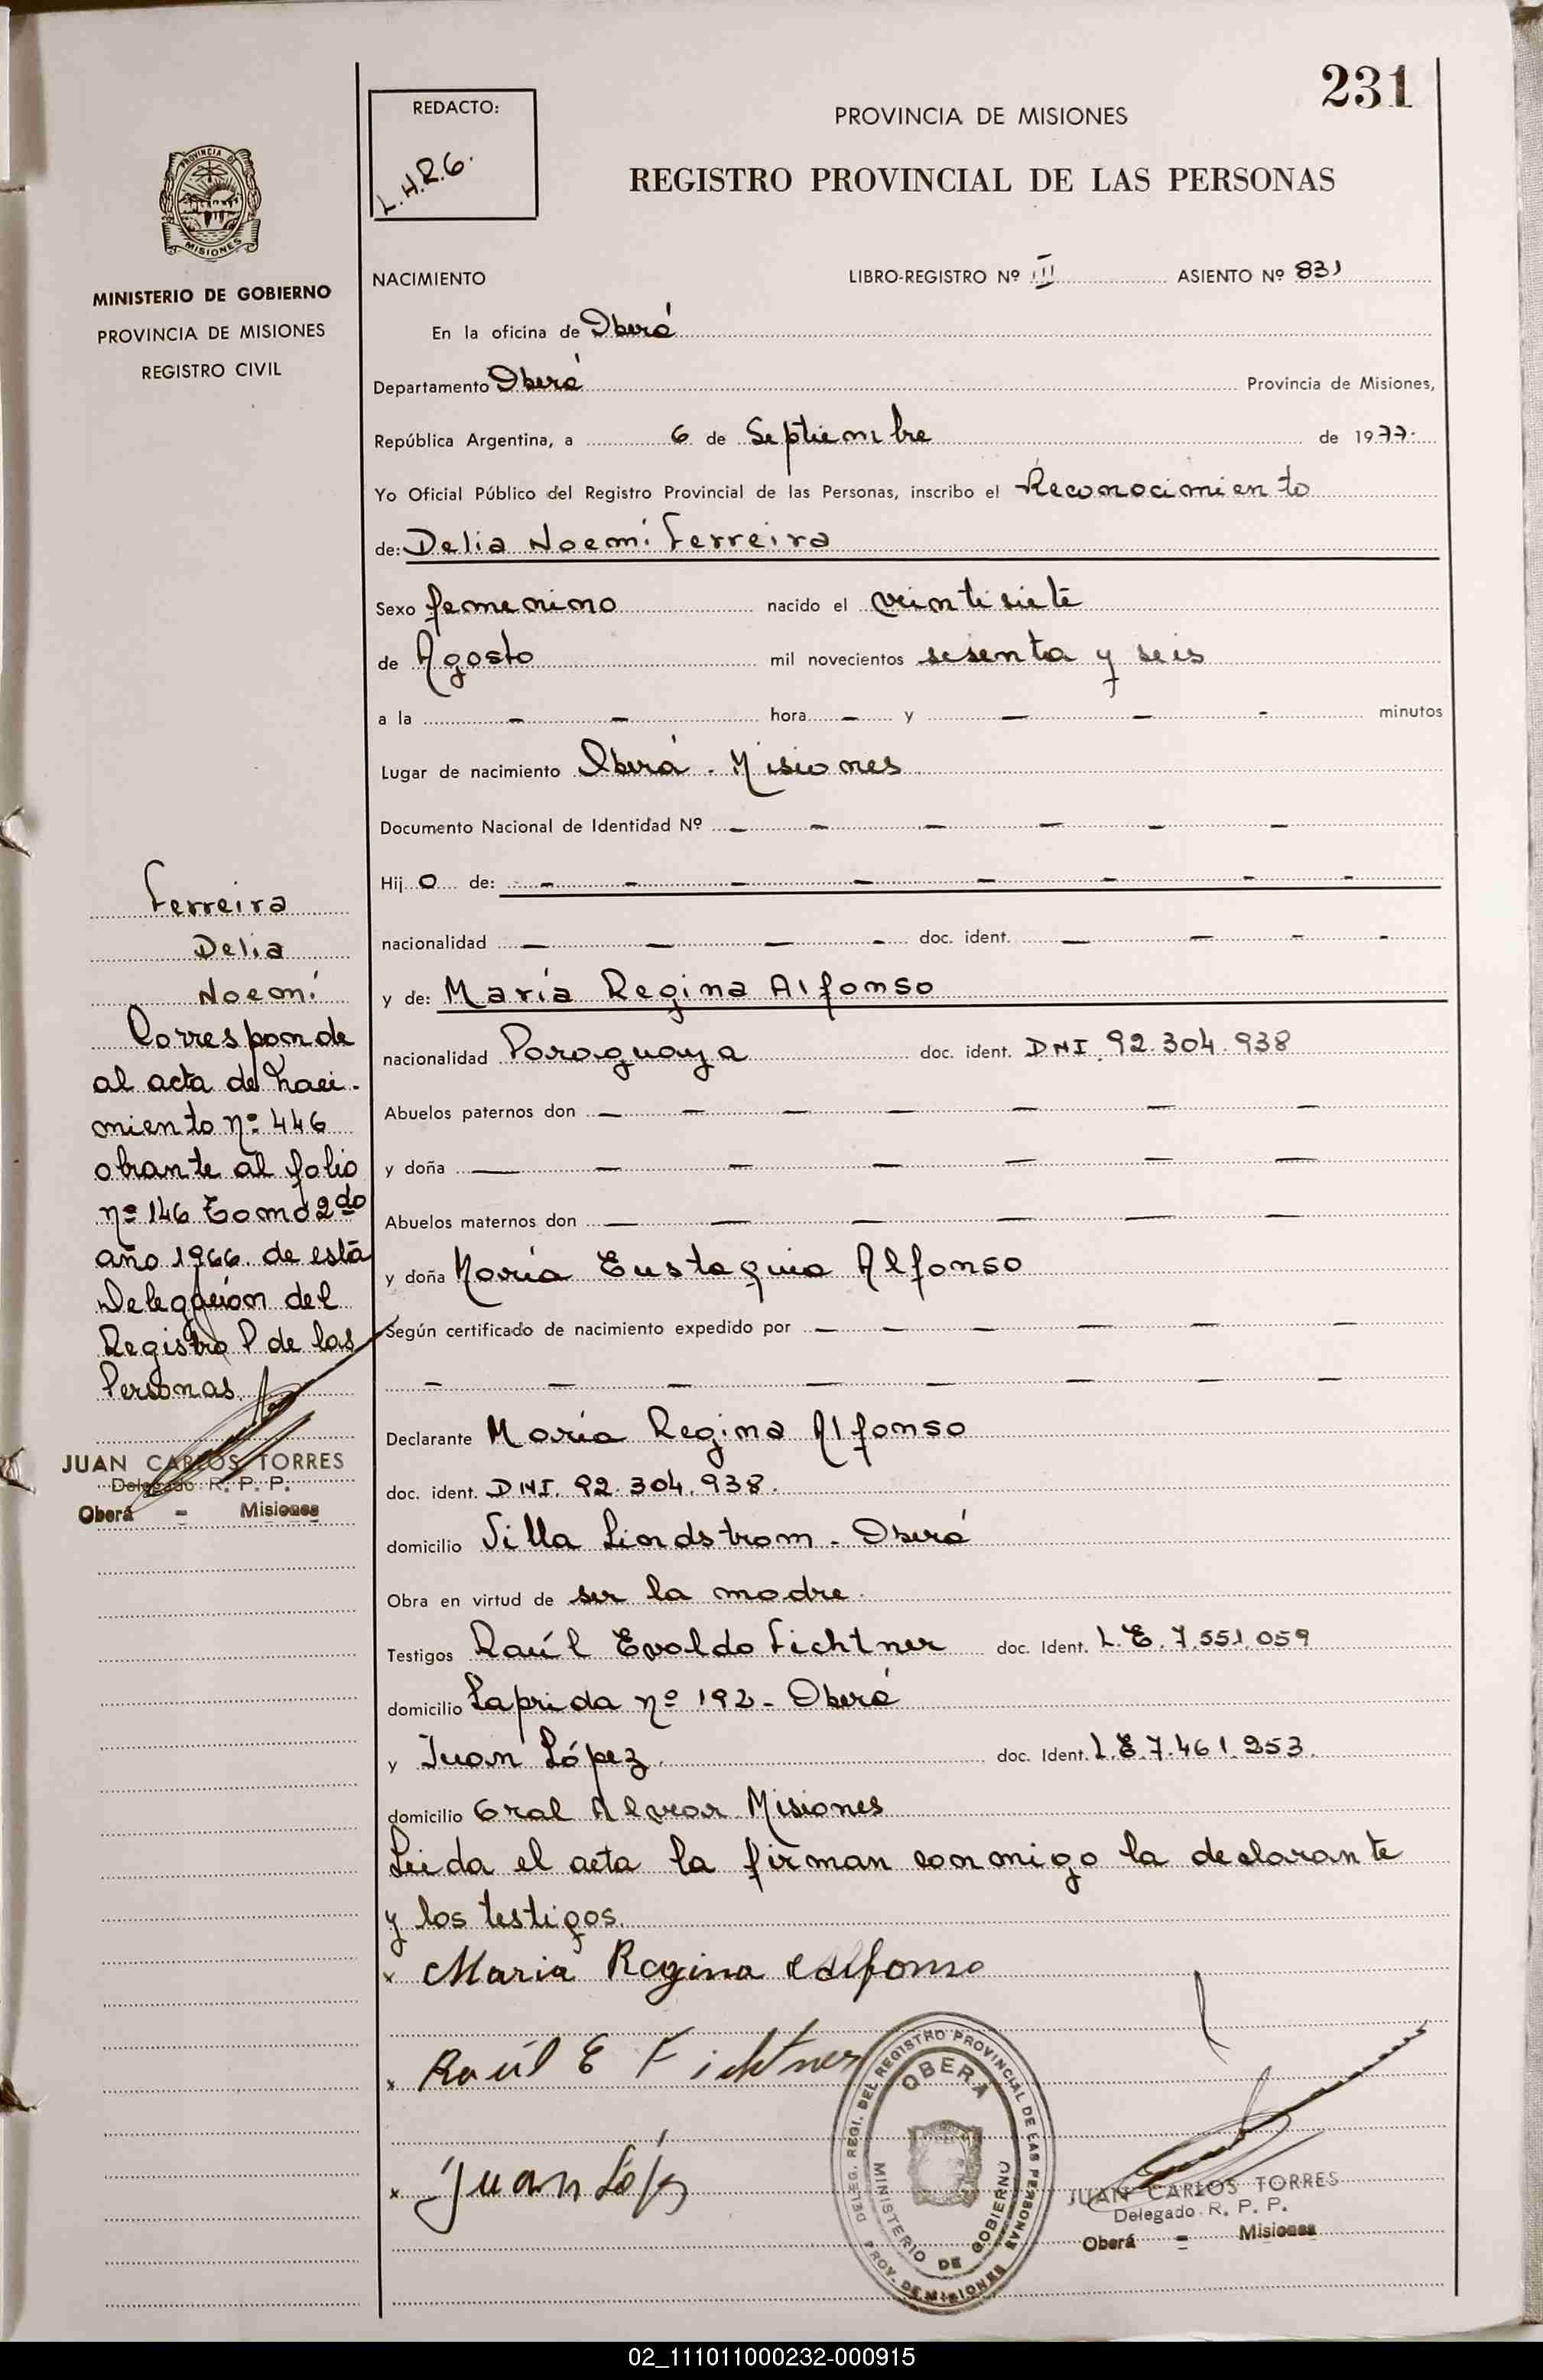 231
REDACTO:
L.H.R.G.
PROVINCIA DE MISIONES
REGISTRO PROVINCIAL DE LAS PERSONAS
PROVINCIA D
MISIONES
MINISTERIO DE GOBIERNO
PROVINCIA DE MISIONES
REGISTRO CIVIL
NACIMIENTO LIBRO-REGISTRO Nº III ASIENTO Nº 831
En la oficina de Oberá
Departamento Oberá Provincia de Misiones,
República Argentina, a 6 de Septiembre de 1977.
Yo Oficial Público del Registro Provincial de las Personas, inscribo el Reconocimiento
de: Delia Noemí Ferreira
Sexo femenino nacido el veintisiete
de Agosto mil novecientos sesenta y seis
a la — — hora — y — — - minutos
Lugar de nacimiento Oberá - Misiones
Documento Nacional de Identidad Nº — — — — — —
Hij o de: — — — — — — — —
nacionalidad — — — - doc. ident. — — - -
y de: María Regina Alfonso
nacionalidad Paraguaya doc. ident. DNI. 92.304.938
Abuelos paternos don — — — — — — —
y doña — — — — — — —
Abuelos maternos don — — — — — —
y doña María Eustaquia Alfonso
Según certificado de nacimiento expedido por — — — — — —
— — — — — — — —
Declarante María Regina Alfonso
doc. ident. DNI. 92.304.938.
domicilio Villa Lindstrom - Oberá
Obra en virtud de ser la madre.
Testigos Raúl Evaldo Fichtner doc. Ident. L.E. 7.551.059
domicilio Laprida nº 192 - Oberá
y Juan López doc. Ident. L.E. 7.461.253.
domicilio Gral Alvear Misiones
Leida el acta la firman conmigo la declarante
y los testigos.
x Maria Regina Alfonso
x Raúl E Fichtner
x Juan López
Ferreira
Delia
Noemí
Corresponde
al acta de naci-
miento nº 446
obrante al folio
nº 146 Tomo 2do
año 1966. de está
Delegación del
Registro P de las
Personas.
JUAN CARLOS TORRES
Delegado R. P. P.
Oberá - Misiones
DELEG. REGI. DEL REGISTRO PROVINCIAL DE LAS PERSONAS
OBERA
MINISTERIO DE GOBIERNO
PROV. DE MISIONES
JUAN CARLOS TORRES
Delegado R. P. P.
Oberá - Misiones
02_111011000232-000915